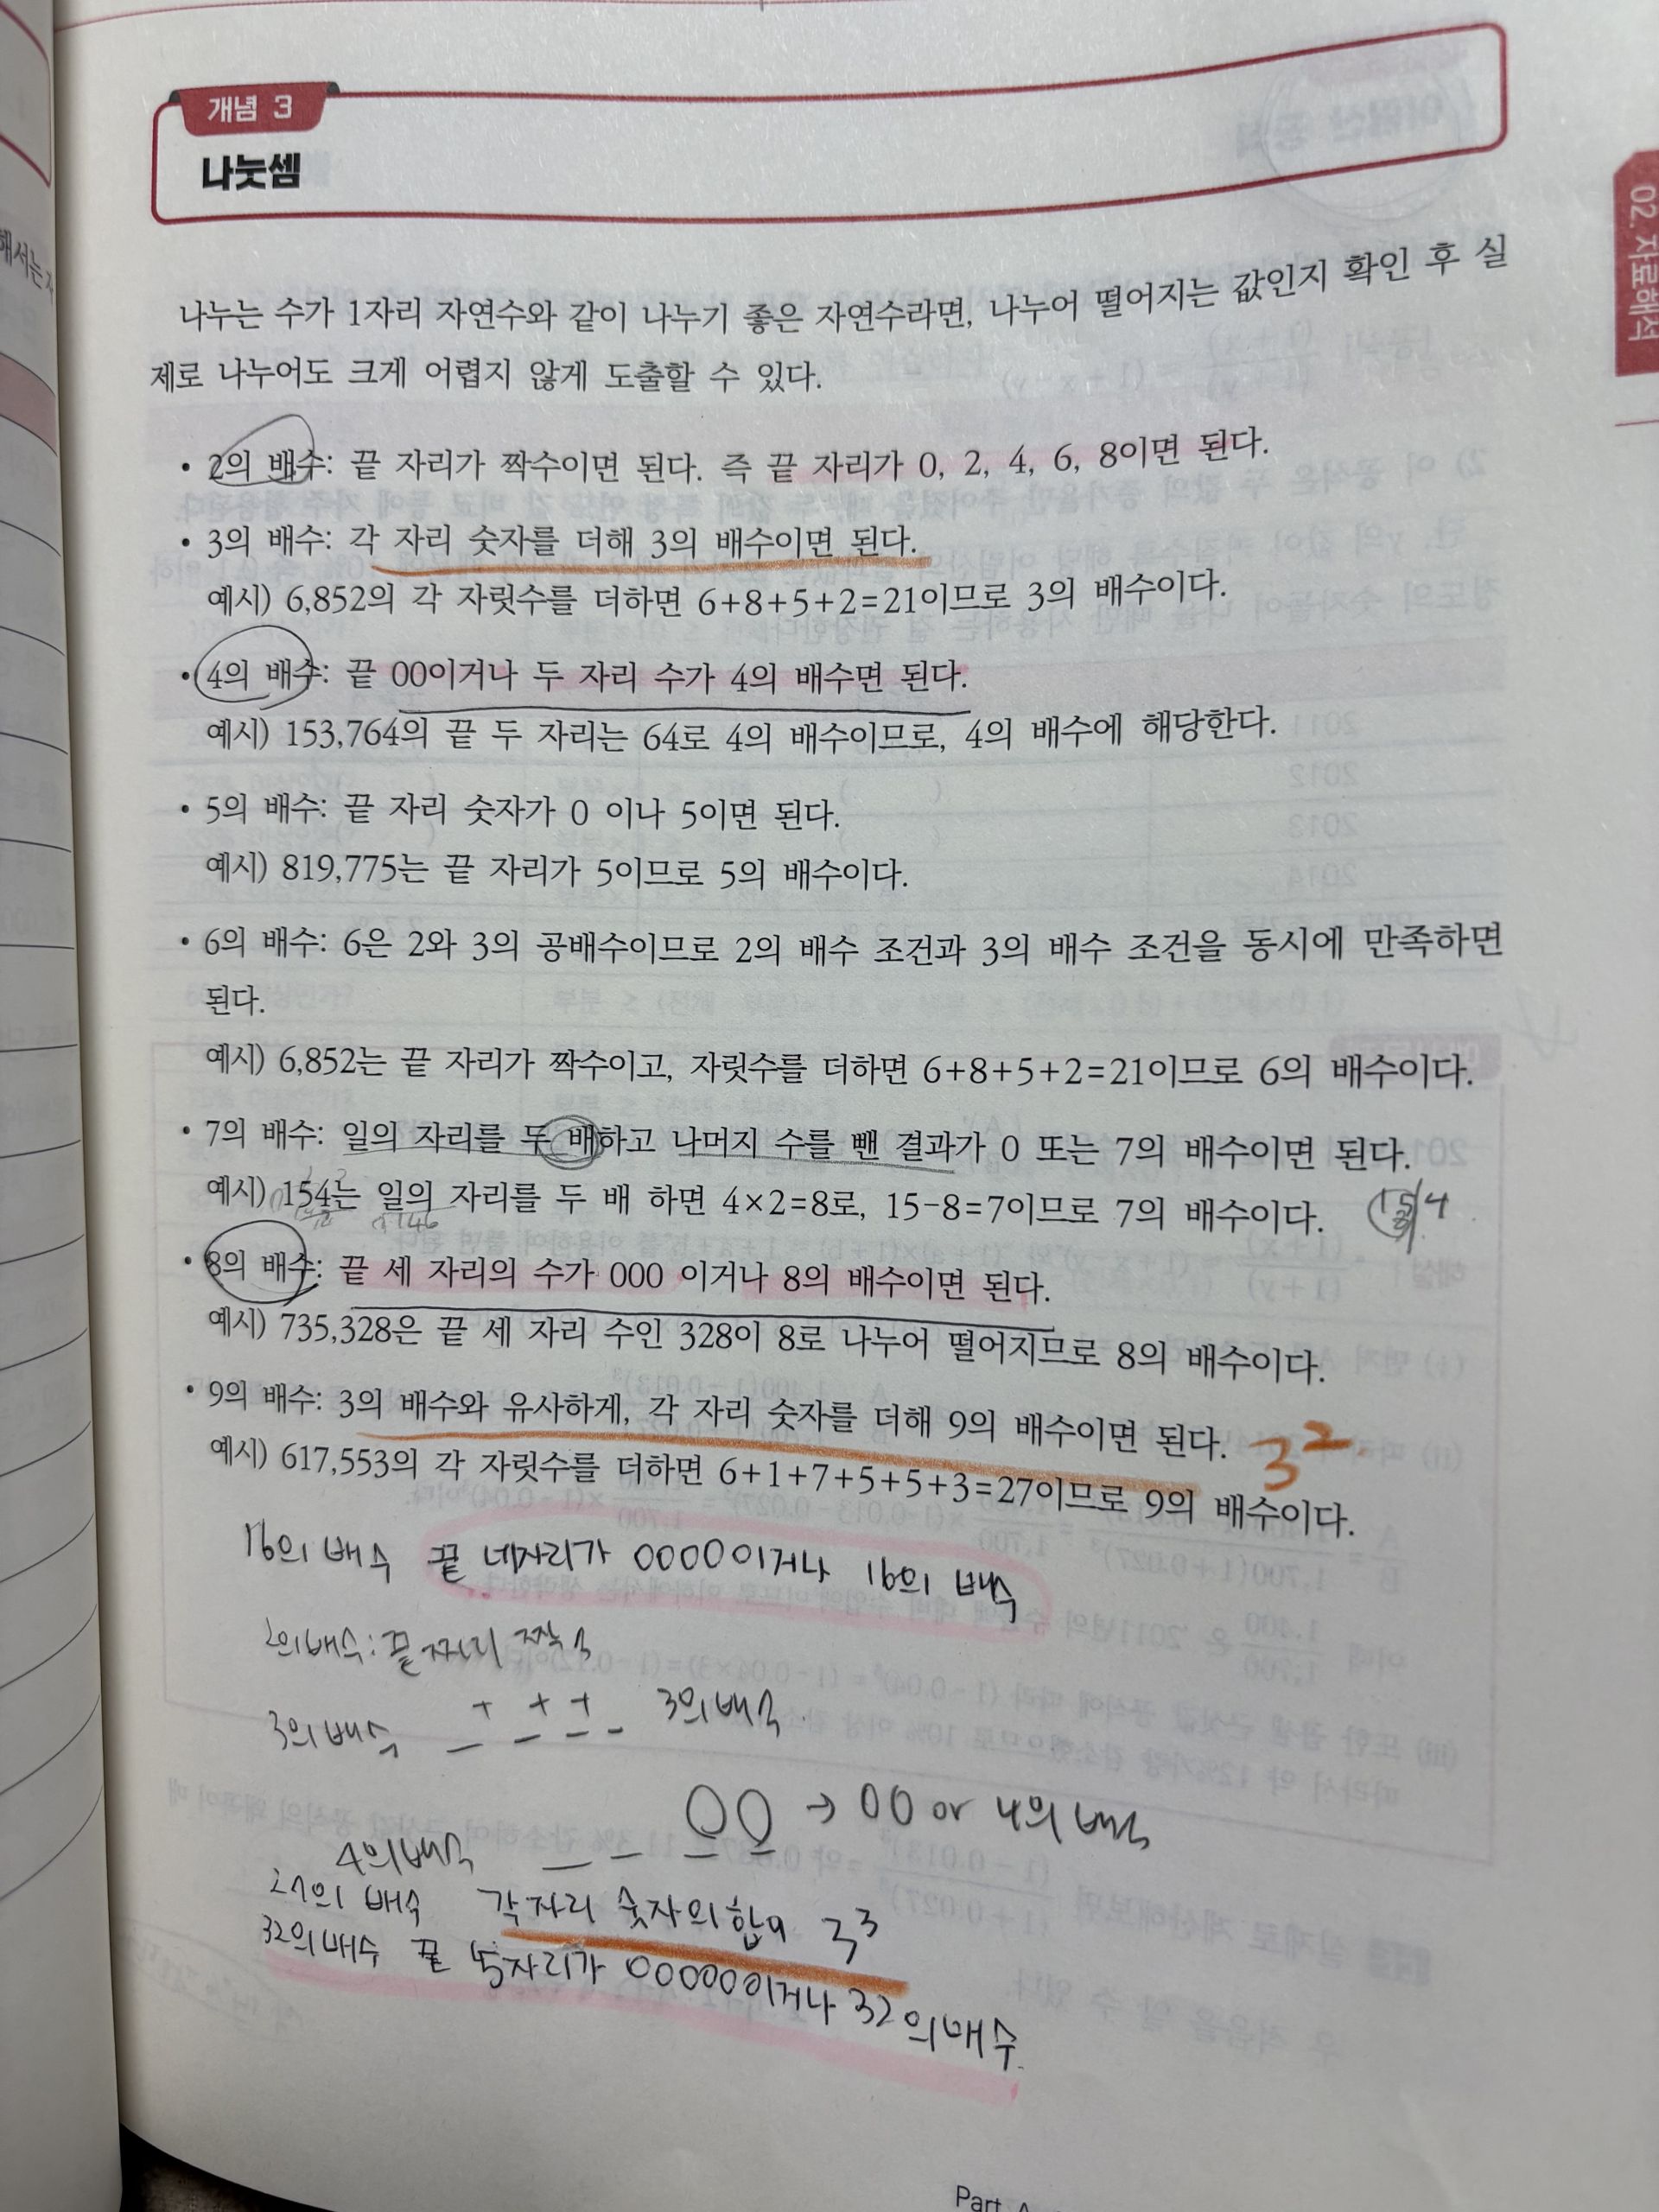 개념 3
나눗셈
02. 자료해석
해서는
나누는 수가 1자리 자연수와 같이 나누기 좋은 자연수라면, 나누어 떨어지는 값인지 확인 후 실
제로 나누어도 크게 어렵지 않게 도출할 수 있다.
• 2의 배수: 끝 자리가 짝수이면 된다. 즉 끝 자리가 0, 2, 4, 6, 8이면 된다.
• 3의 배수: 각 자리 숫자를 더해 3의 배수이면 된다.
예시) 6,852의 각 자릿수를 더하면 6+8+5+2=21이므로 3의 배수이다.
• 4의 배수: 끝 00이거나 두 자리 수가 4의 배수면 된다.
예시) 153,764의 끝 두 자리는 64로 4의 배수이므로, 4의 배수에 해당한다.
• 5의 배수: 끝 자리 숫자가 0 이나 5이면 된다.
예시) 819,775는 끝 자리가 5이므로 5의 배수이다.
• 6의 배수: 6은 2와 3의 공배수이므로 2의 배수 조건과 3의 배수 조건을 동시에 만족하면
된다.
예시) 6,852는 끝 자리가 짝수이고, 자릿수를 더하면 6+8+5+2=21이므로 6의 배수이다.
• 7의 배수: 일의 자리를 두 배하고 나머지 수를 뺀 결과가 0 또는 7의 배수이면 된다.
예시) 154는 일의 자리를 두 배 하면 4×2=8로, 15-8=7이므로 7의 배수이다.
15/4
8
• 8의 배수: 끝 세 자리의 수가 000 이거나 8의 배수이면 된다.
예시) 735,328은 끝 세 자리 수인 328이 8로 나누어 떨어지므로 8의 배수이다.
• 9의 배수: 3의 배수와 유사하게, 각 자리 숫자를 더해 9의 배수이면 된다.
3²
예시) 617,553의 각 자릿수를 더하면 6+1+7+5+5+3=27이므로 9의 배수이다.
16의 배수 끝 네자리가 0000이거나 16의 배수
2의배수: 끝자리 짝수
3의배수 _ + _ + _ + _ 3의배수
00 → 00 or 4의 배수
4의배수 _ _ _ _
27의 배수 각자리 숫자의 합이 3³
32의배수 끝 5자리가 00000이거나 32의배수
Part A